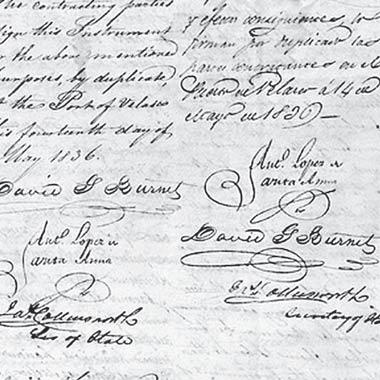 the contracting parties
sign this Instrument
for the above mentioned
purposes by duplicate,
at the Port of Velasco
this fourteenth day of
May 1836.
David G Burnet
Antº Lopez de
Santa Anna
Jas Collinsworth
Sec of State
y efectos consiguientes, lo
firman por duplicado las
partes
en el
Velasco a 14 de
Mayo de 1836 —
Antº Lopez de
Santa Anna
David G Burnet
Jas Collinsworth
Secretary of